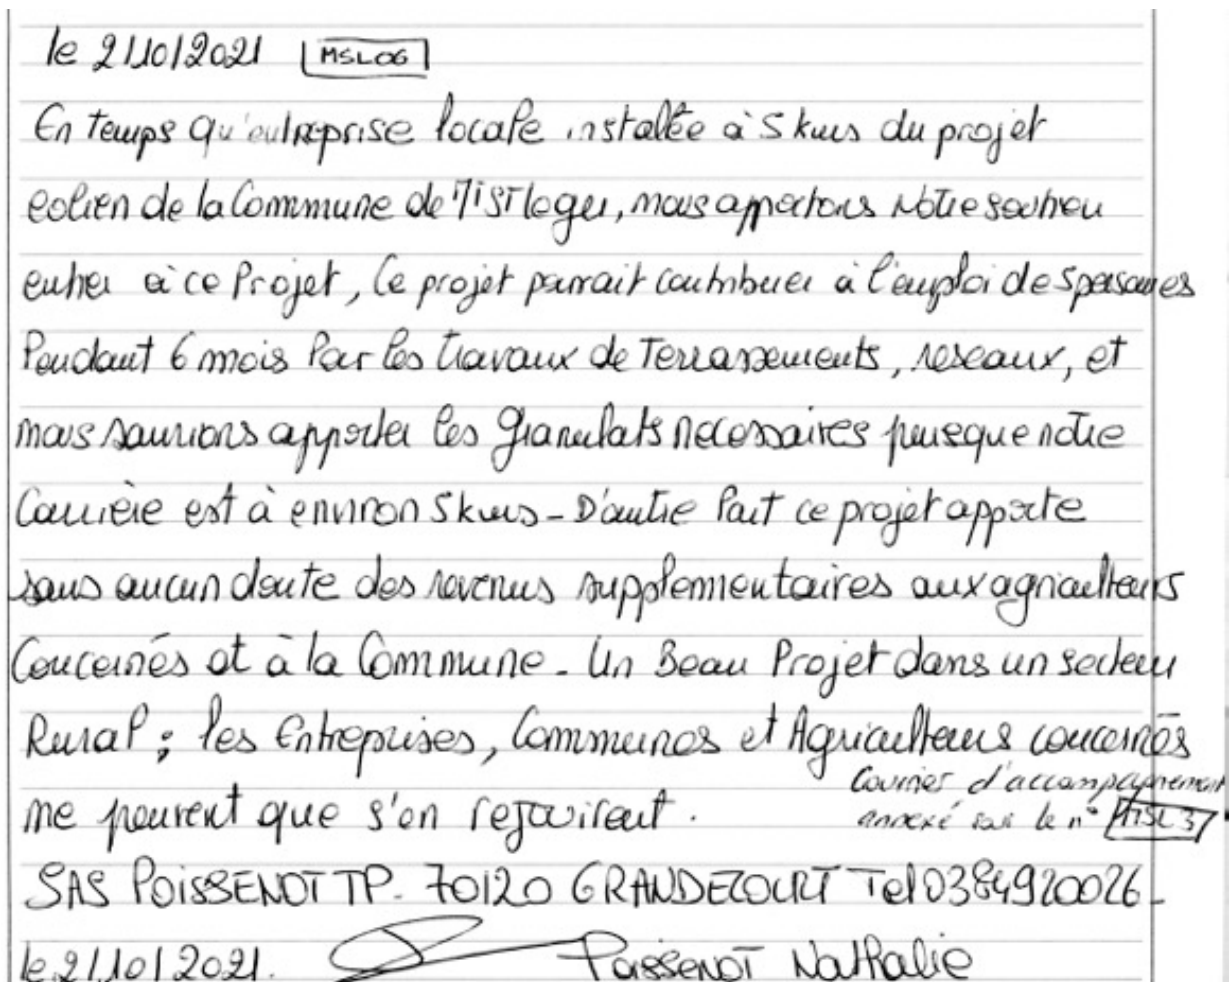 le 21/10/2021 MSL06
En temps qu'entreprise locale installée à 5 kms du projet
eolien de la Commune de Mt St leger, nous apportons Notre soutien
entier à ce Projet, Ce projet pourrait contribuer à l'emploi de 5 personnes
Pendant 6 mois Par les travaux de Terrassements, reseaux, et
nous saurions apporter les Granulats necessaires puisque notre
Carrière est à environ 5 kms - D'autre Part ce projet apporte
sans aucun doute des revenus supplementaires aux agriculteurs
Concernés et à la Commune - Un Beau Projet dans un secteur
Rural ; les Entreprises, Communes et Agriculteurs concernés
ne peuvent que s'en rejouirent .
Courrier d'accompagnement
annexé sous le n° MSL 3
SAS POISSENOT TP - 70120 GRANDECOURT Tel 0384920026 -
le 21/10/2021. Poissenot Nathalie